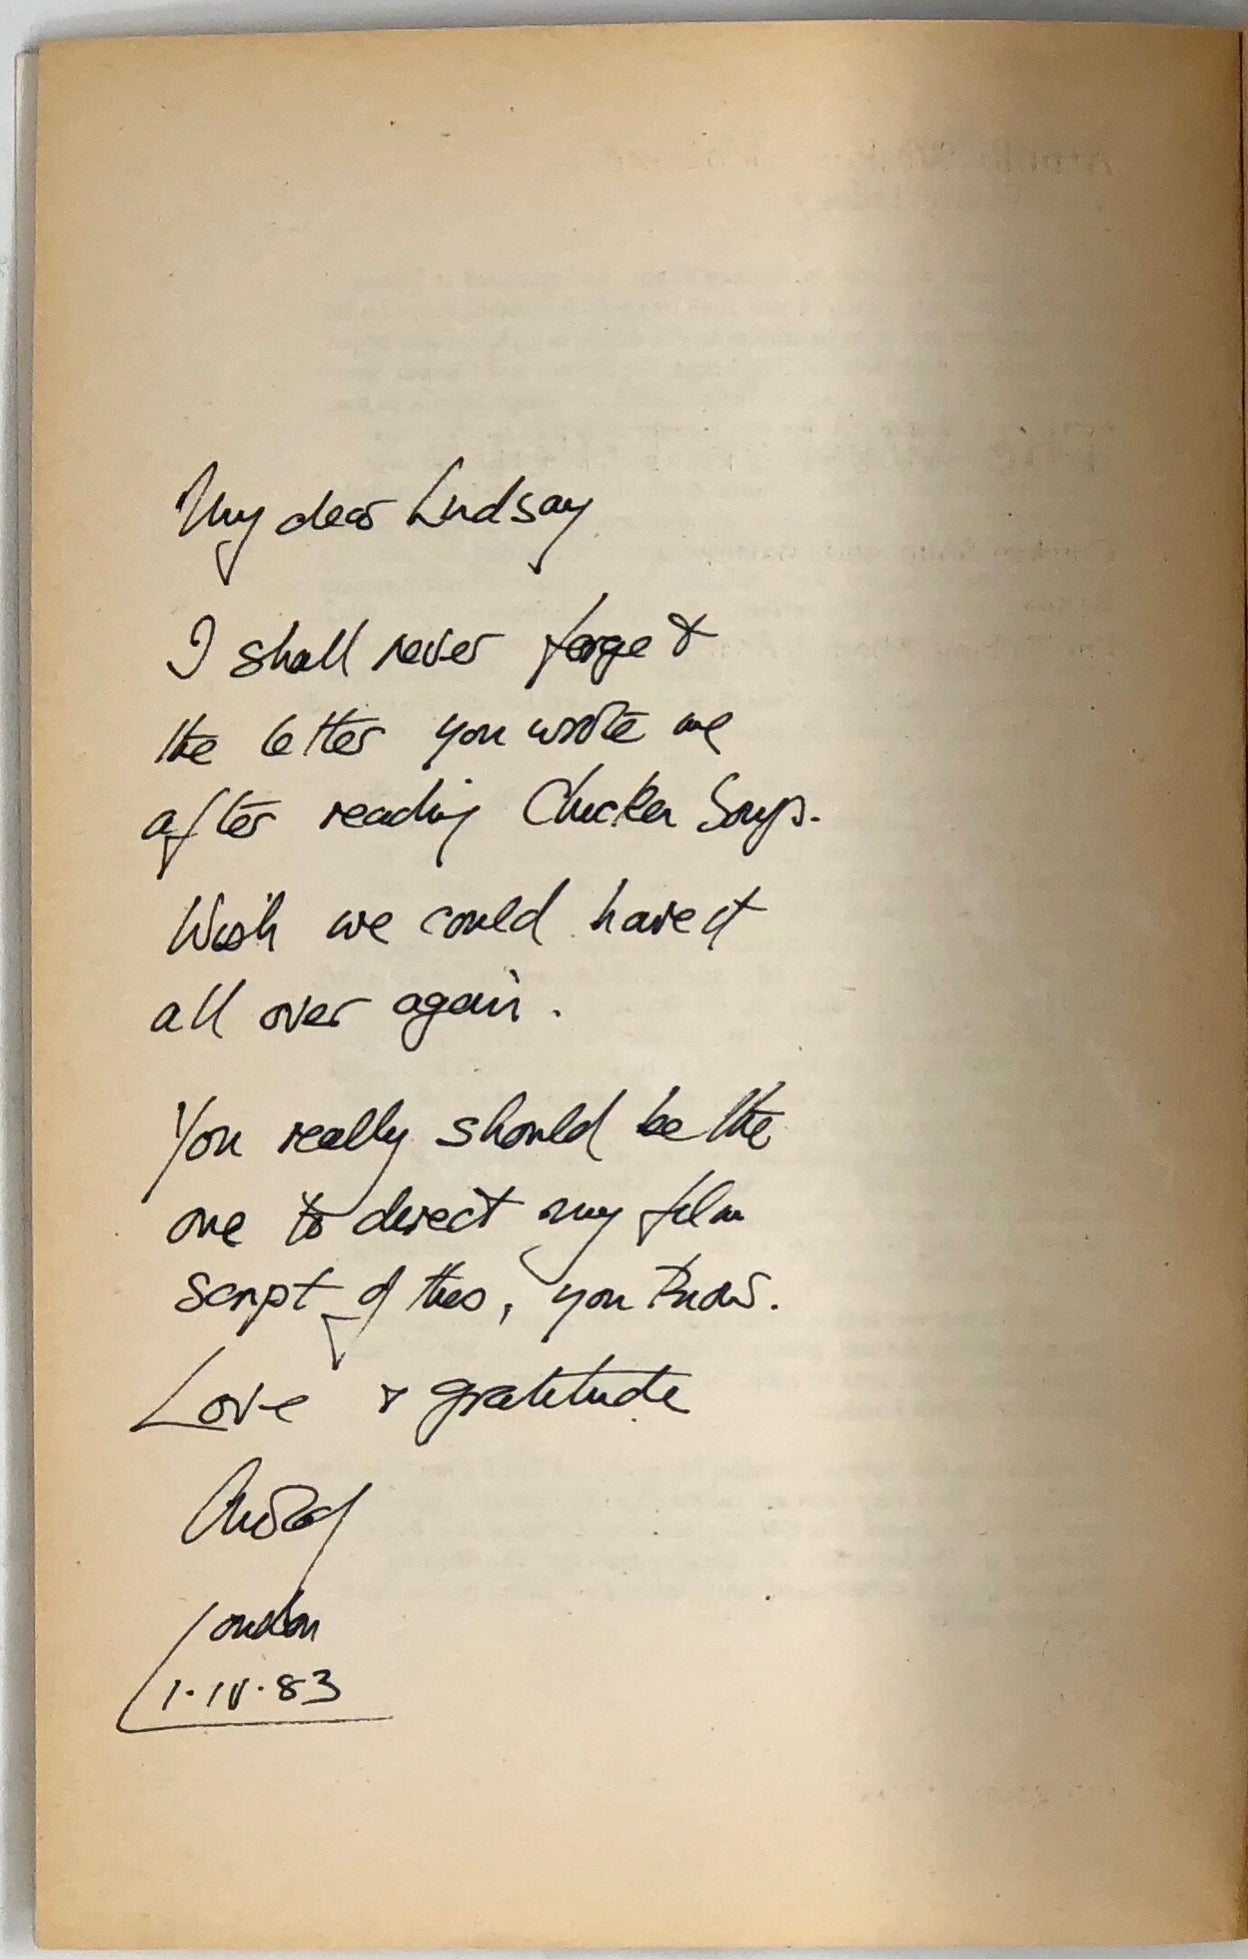 My dear Lindsay
I shall never forget
the letter you wrote me
after reading Chicken Soup.
Wish we could have it
all over again.
You really should be the
one to direct my film
script of this, you know.
Love & gratitude
Arnold
London
1·IV·83